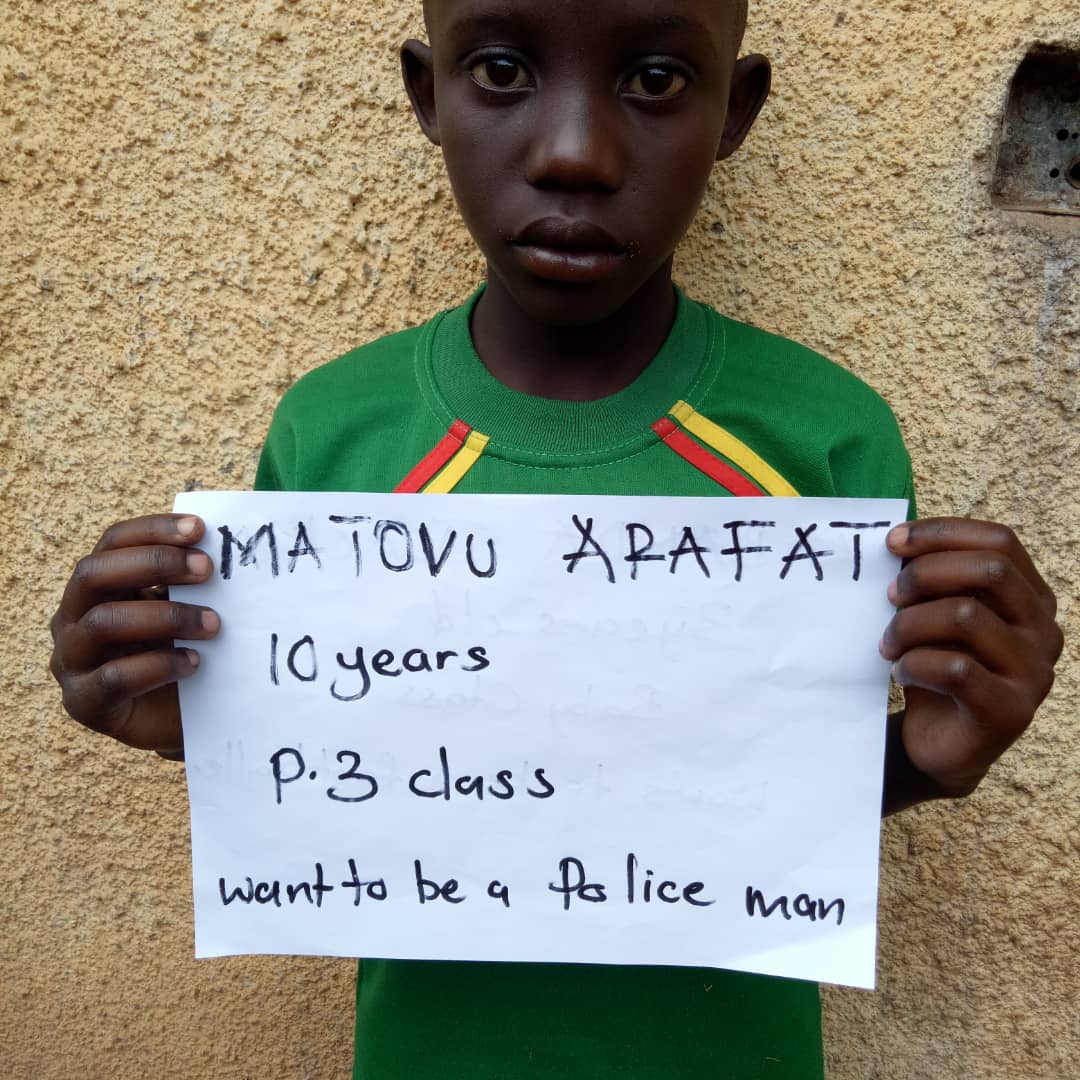 MATOVU ARAFAT
10 years
P.3 class
want to be a Police man